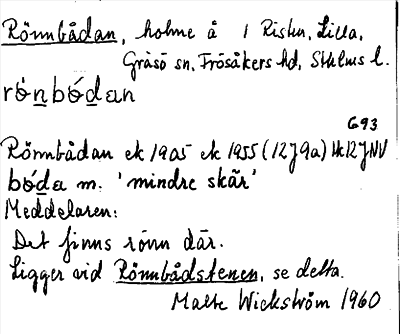 Rönnbådan, holme å 1 Risten, Lilla,
Gräsö sn, Frösåkers hd, Sthlms l.
rǿnbódan
G93
Rönnbådan ek 1905 ek 1955 (12J9a) Hk12JNV
båda m. 'mindre skär'
Meddelaren:
Det finns rönn där.
Ligger vid Rönnbådstenen, se detta.
Malte Wickström 1960